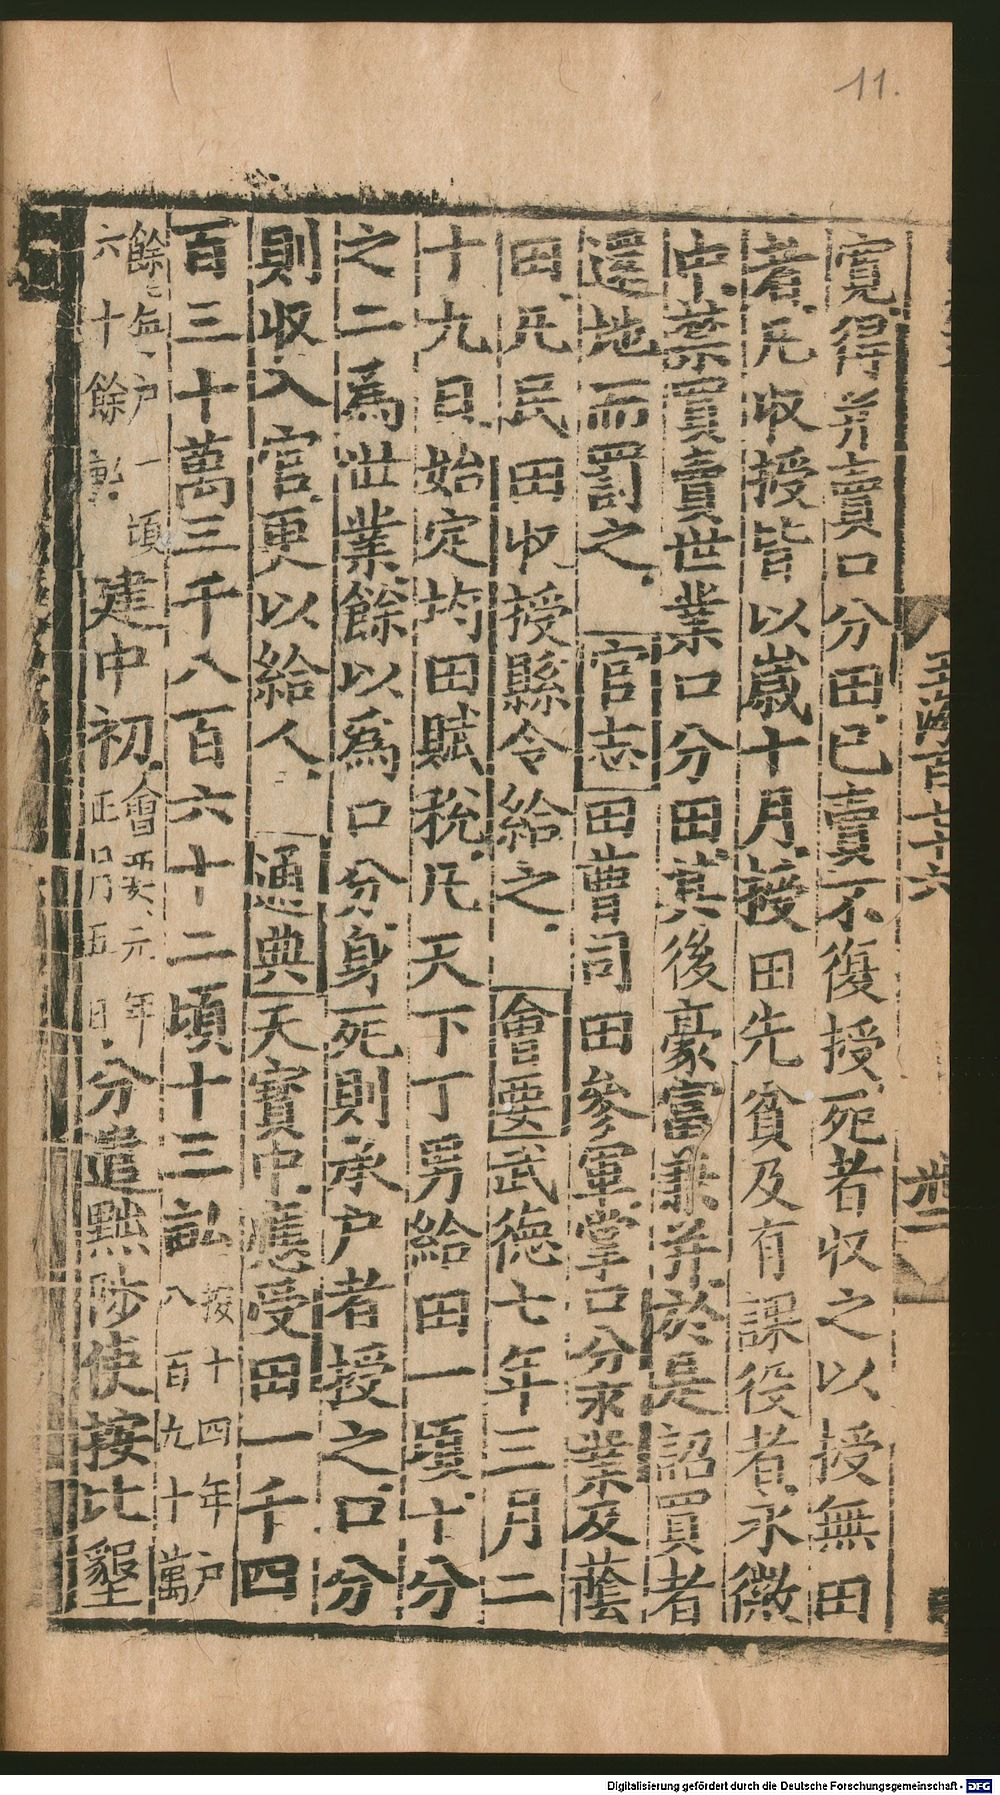 11.
玉海百七十六
寛得并賣口分田已賣不復授死者収之以授無田
者凡収授皆以歳十月授田先貧及有課役者永徽
中禁買賣世業口分田其後豪富兼并於是詔買者
還地而罰之官志田曹司田參軍掌口分永業及蔭
田凡民田収授縣令給之會要武德七年三月二
十九日始定均田賦稅凡天下丁男給田一頃十分
之二為世業餘以為口分身死則承戸者授之口分
則収入官更以給人通典天寶中應受田一千四
百三十萬三千八百六十二頃十三畝按十四年戸
八百九十萬
餘每戸一頃
六十餘畝建中初會要元年
正月五日分遣黜陟使按比墾
Digitalisierung gefördert durch die Deutsche Forschungsgemeinschaft - DFG